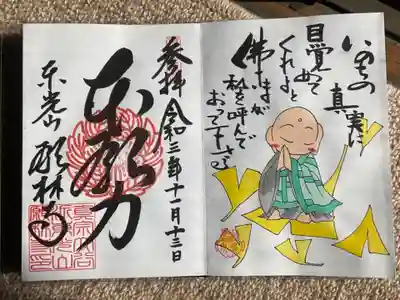 いのちの
真実に
目覚めて
くれよと
佛さまが
私を呼んで
おって下さる
参拝 令和三年十一月十三日
本願力
東光山